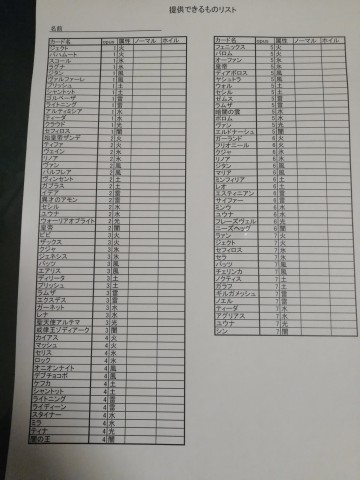 提供できるものリスト
名前
カード名 opus 属性 ノーマル ホイル
ジェクト 1 火
バハムート 1 火
スコール 1 氷
ラグナ 1 氷
ジタン 1 風
ヴァルファーレ 1 風
プリッシュ 1 土
シャントット 1 土
ゴルベーザ 1 雷
ライトニング 1 雷
アルティミシア 1 水
ティーダ 1 水
クラウド 1 光
セフィロス 1 闇
始皇帝ザンデ 2 火
ティファ 2 火
ヴェイン 2 氷
リノア 2 氷
ヴァン 2 風
バルフレア 2 風
ヴィンセント 2 土
ガブラス 2 土
イデア 2 雷
異才のアモン 2 雷
セシル 2 水
ユウナ 2 水
ウォーリアオブライト 2 光
皇帝 2 闇
ビビ 3 火
ザックス 3 火
クジャ 3 氷
ジェネシス 3 氷
バッツ 3 風
エアリス 3 風
ディリータ 3 土
プリッシュ 3 土
ラムザ 3 雷
エクスデス 3 雷
ガーネット 3 水
レナ 3 水
聖天使アルテマ 3 光
戒律王ゾディアーク 3 闇
カイアス 4 火
マッシュ 4 火
セリス 4 氷
ロック 4 氷
オニオンナイト 4 風
デブチョコボ 4 風
ケフカ 4 土
シャントット 4 土
ライトニング 4 雷
ライディーン 4 雷
スタイナー 4 水
ミラ 4 水
ティナ 4 光
闇の王 4 闇
カード名 opus 属性 ノーマル ホイル
フェニックス 5 火
パロム 5 火
オーファン 5 氷
皇帝 5 氷
ディアボロス 5 風
ヤシュトラ 5 風
ウォル 5 土
セシル 5 土
ゼムス 5 雷
ラムザ 5 雷
暗闇の雲 5 水
ポロム 5 水
ヴァン 5 光
エルドナーシュ 5 闇
ガーランド 6 火
フリオニール 6 火
クジャ 6 氷
リノア 6 氷
ジタン 6 風
マリア 6 風
ミンフィリア 6 土
レオ 6 土
エスティニアン 6 雷
サイファー 6 雷
ミンウ 6 水
ユウナ 6 水
フレースヴェルグ 6 光
ニーズヘッグ 6 闇
ラァン 7 火
ジェクト 7 火
セフィロス 7 氷
セラ 7 氷
バッツ 7 風
チェリンカ 7 風
ノクティス 7 土
ガラフ 7 土
ギルガメッシュ 7 雷
ノエル 7 雷
ティーダ 7 水
アグリアス 7 水
ユウナ 7 光
シン 7 闇